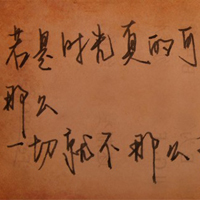 若是时光真的可
那么
一切就不那么